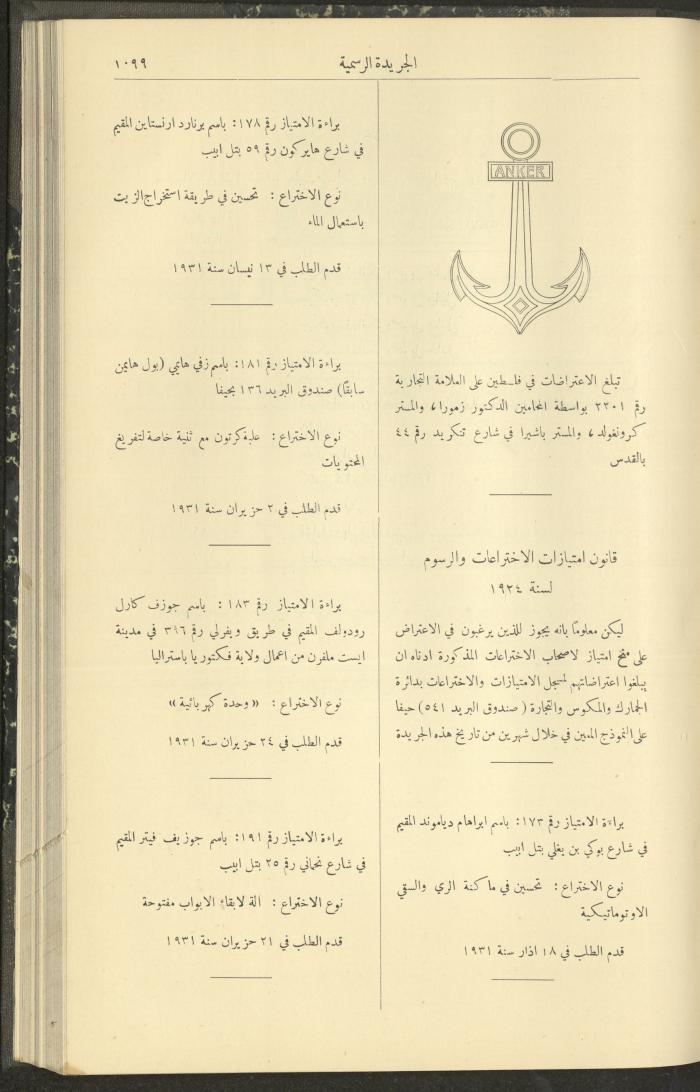 الجريدة الرسمية
١٠٩٩
ANKER
تبلغ الاعتراضات في فلسطين على العلامة التجارية
رقم ٢٣٠١ بواسطة المحامين الدكتور زمورا، والمستر
كرونغولد، والمستر باشيرا في شارع تنكريد رقم ٤٤
بالقدس
قانون امتيازات الاختراعات والرسوم
لسنة ١٩٢٤
ليكن معلوماً بانه يجوز للذين يرغبون في الاعتراض
على منح امتياز لاصحاب الاختراعات المذكورة ادناه ان
يبلغوا اعتراضاتهم لمسجل الامتيازات والاختراعات بدائرة
الجمارك والمكوس والتجارة (صندوق البريد ٥٤١) حيفا
على النموذج المعين في خلال شهرين من تاريخ هذه الجريدة
براءة الامتياز رقم ١٧٣: باسم ابراهام دياموند المقيم
في شارع بوكي بن يغلي بتل ابيب
نوع الاختراع: تحسين في ماكنة الري والسقي
الاوتوماتيكية
قدم الطلب في ١٨ اذار سنة ١٩٣١
براءة الامتياز رقم ١٧٨: باسم برنارد ارنستاين المقيم
في شارع هايركون رقم ٥٩ بتل ابيب
نوع الاختراع: تحسين في طريقة استخراج الزيت
باستعمال الماء
قدم الطلب في ١٣ نيسان سنة ١٩٣١
براءة الامتياز رقم ١٨١: باسم زفي هايمي (بول هايمن
سابقاً) صندوق البريد ١٣٦ بحيفا
نوع الاختراع: علبة كرتون مع ثنية خاصة لتفريغ
المحتويات
قدم الطلب في ٢ حزيران سنة ١٩٣١
براءة الامتياز رقم ١٨٣: باسم جوزف كارل
رودولف المقيم في طريق ويفرلي رقم ٣٩٦ في مدينة
ايست ملفرن من اعمال ولاية فكتوريا باستراليا
نوع الاختراع: «وحدة كهربائية»
قدم الطلب في ٢٤ حزيران سنة ١٩٣١
براءة الامتياز رقم ١٩١: باسم جوزيف فيتر المقيم
في شارع نحماني رقم ٢٥ بتل ابيب
نوع الاختراع: الة لابقاء الابواب مفتوحة
قدم الطلب في ٢١ حزيران سنة ١٩٣١